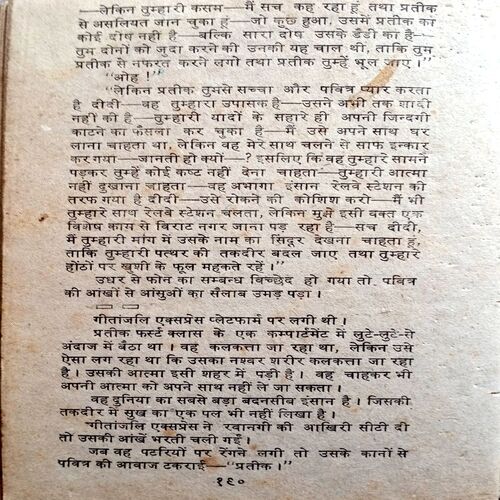 —लेकिन तुम्हारी कसम— मैं सच कह रहा हूं, तथा प्रतीक
से असलियत जान चुका हूं—जो कुछ हुआ, उसमें प्रतीक का
कोई दोष नहीं है—बल्कि सारा दोष उसके डैडी का है—
तुम दोनों को जुदा करने की उनकी यह चाल थी, ताकि तुम
प्रतीक से नफरत करने लगो तथा प्रतीक तुम्हें भूल जाए।"
"ओह !"
"लेकिन प्रतीक तुमसे सच्चा और पवित्र प्यार करता
है दीदी—वह तुम्हारा उपासक है—उसने अभी तक शादी
नहीं की है—तुम्हारी यादों के सहारे ही अपनी जिन्दगी
काटने का फैसला कर चुका है—मैं उसे अपने साथ घर
लाना चाहता था, लेकिन वह मेरे साथ चलने से साफ इन्कार
कर गया—जानती हो क्यों—? इसलिए कि वह तुम्हारे सामने
पड़कर तुम्हें कोई कष्ट नहीं देना चाहता—तुम्हारी आत्मा
नहीं दुखाना चाहता—वह अभागा इंसान रेलवे स्टेशन की
तरफ गया है दीदी—उसे रोकने की कोशिश करो—मैं भी
तुम्हारे साथ रेलवे स्टेशन चलता, लेकिन मुझे इसी वक्त एक
विशेष कार्य से विराट नगर जाना पड़ रहा है—सच दीदी,
मैं तुम्हारी मांग में उसके नाम का सिंदूर देखना चाहता हूं,
ताकि तुम्हारी पत्थर की तकदीर बदल जाए तथा तुम्हारे
होंठों पर खुशी के फूल महकते रहें।"
उधर से फोन का सम्बन्ध विच्छेद हो गया तो पवित्र
की आंखों से आंसुओं का सैलाब उमड़ पड़ा।
गीतांजलि एक्सप्रेस प्लेटफार्म पर लगी थी।
प्रतीक फर्स्ट क्लास के एक कम्पार्टमेंट में लुटे-लुटे-से
अंदाज में बैठा था। वह कलकत्ता जा रहा था, लेकिन उसे
ऐसा लग रहा था कि उसका नश्वर शरीर कलकत्ता जा रहा
है। उसकी आत्मा इसी शहर में पड़ी है। वह चाहकर भी
अपनी आत्मा को अपने साथ नहीं ले जा सकता।
वह दुनिया का सबसे बड़ा बदनसीब इंसान है। जिसकी
तकदीर में सुख का एक पल भी नहीं लिखा है।
गीतांजलि एक्सप्रेस ने रवानगी की आखिरी सीटी दी
तो उसकी आंखें भरती चली गईं।
जब वह पटरियों पर रेंगने लगी तो उसके कानों से
पवित्र की आवाज टकराई—"प्रतीक।"
१९०